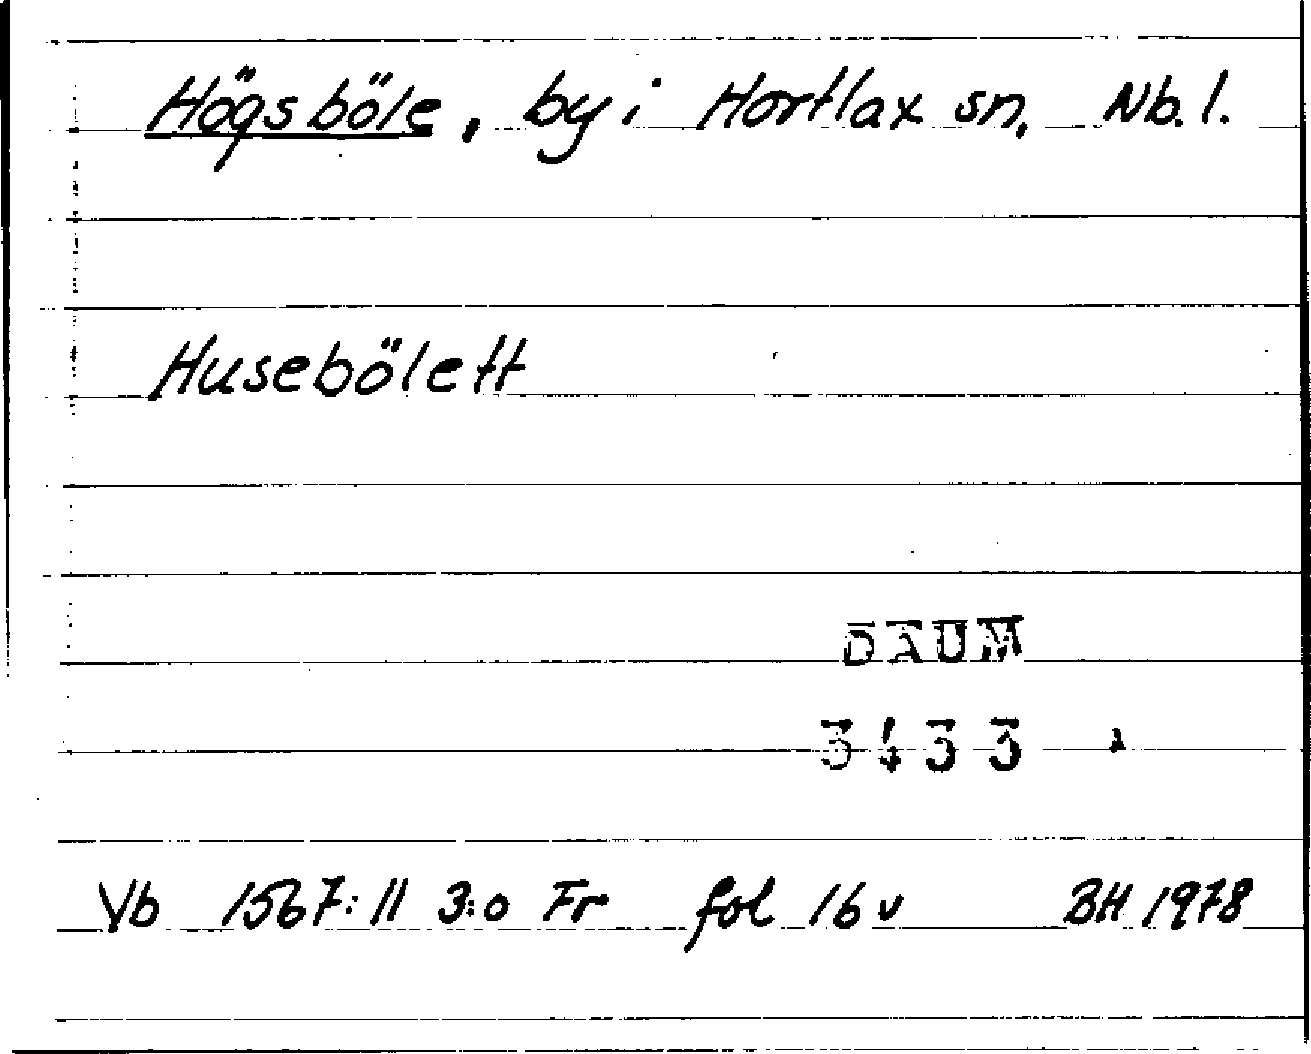 Högsböle, by i Hortlax sn, Nb. l.
Husebölett
DAUM
3433
Vb 1567:11 3:o Fr fol 16 v BH 1978